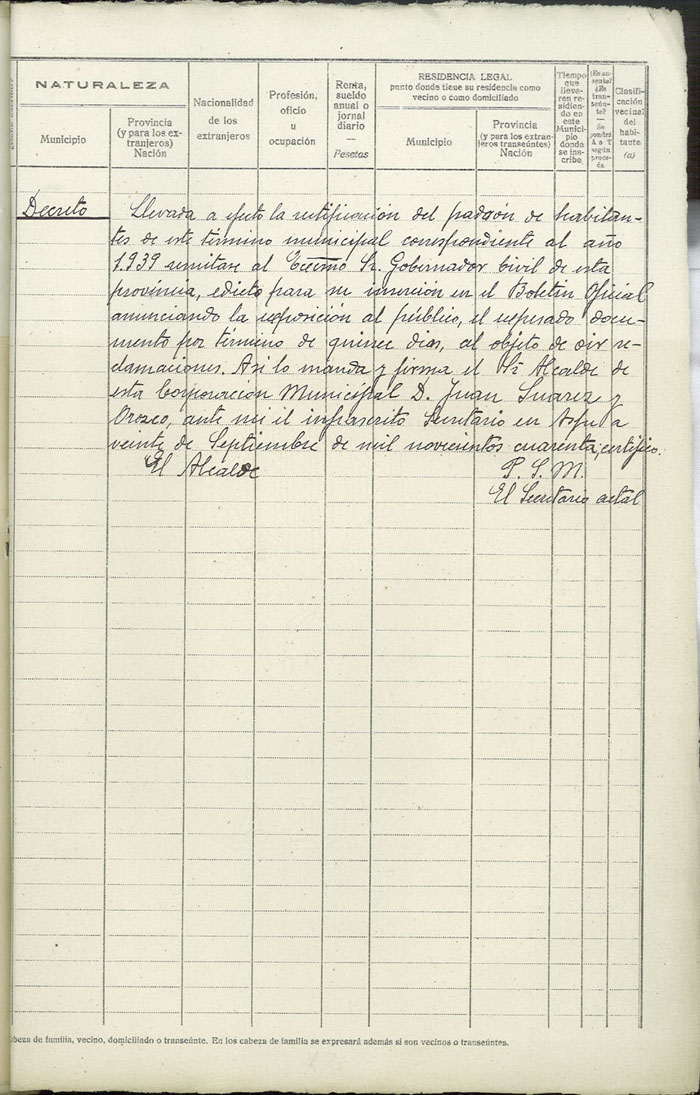 NATURALEZA
Municipio
Provincia
(y para los ex-
tranjeros)
Nación
Nacionalidad
de los
extranjeros
Profesión,
oficio
u
ocupación
Renta,
sueldo
anual o
jornal
diario
—
Pesetas
RESIDENCIA LEGAL
punto donde tiene su residencia como
vecino o como domiciliado
Municipio
Provincia
(y para los extran-
jeros transeúntes)
Nación
Tiempo
que
lleva-
ren re-
sidien-
do en
este
Munici-
pio
donde
se ins-
cribe
Clasifi-
cación
vecinal
del
habi-
tante
(a)
Decreto Llevada a efecto la rectificación del padrón de habitan-
tes de este término municipal correspondiente al año
1.939 remitase al Excmo Sr. Gobernador Civil de esta
provincia, edicto para su inserción en el Boletin Oficial
anunciando la exposición al público, el expresado docu-
mento por término de quince dias, al objeto de oir re-
clamaciones. Asi lo manda y firma el Sr. Alcalde de
esta Corporación Municipal D. Juan Suarez y
Orozco, ante mi el infrascrito Secretario en a
veinte de Septiembre de mil novecientos cuarenta, certifico.
El Alcalde P. S. M.
El Secretario actal
beza de familia, vecino, domiciliado o transeúnte. En los cabeza de familia se expresará además si son vecinos o transeúntes.